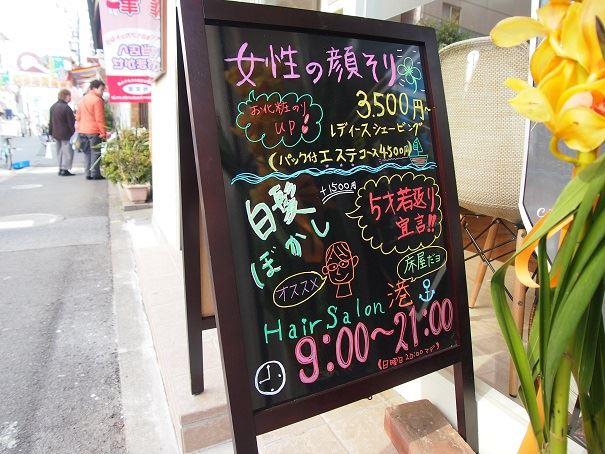 女性の顔そり
お化粧のり
UP!
3.500円~
レディースシェービング
(パック付エステコース4500円)
+1500円
白髪
ぼかし
5才若返り
宣言!!
オススメ
床屋だヨ
Hair Salon 港
9:00~21:00
(日曜日20:00マデ)